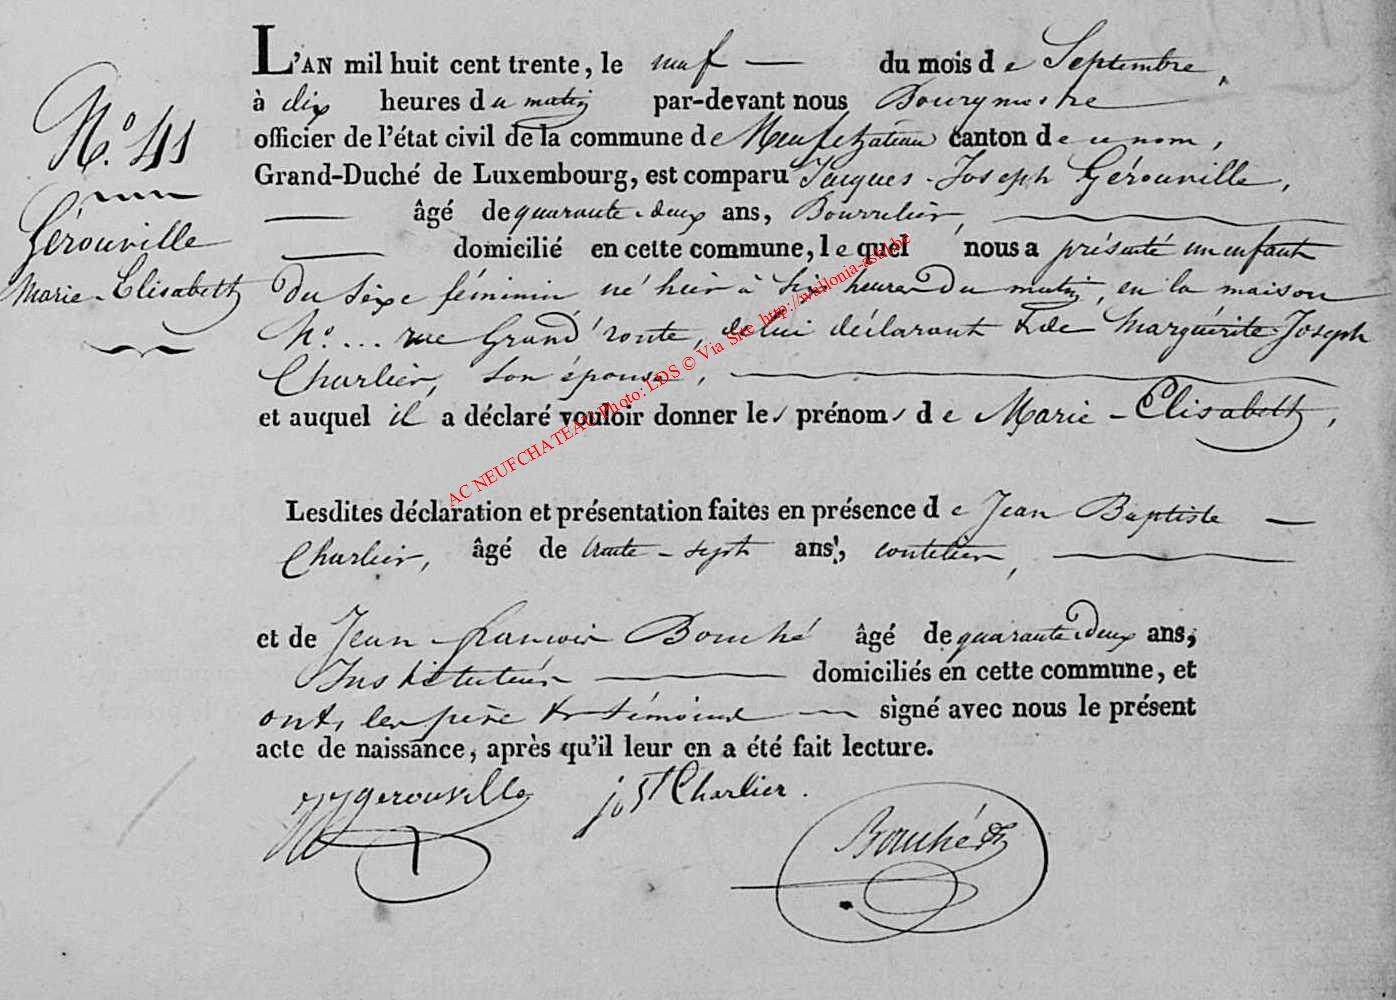 L'AN mil huit cent trente, le neuf du mois de Septembre,
à dix heures du matin par-devant nous Bourgmestre
officier de l'état civil de la commune de Neufchateau canton de ce nom,
Grand-Duché de Luxembourg, est comparu Jacques-Joseph Gérouville,
âgé de quarante-deux ans, Bourrelier,
domicilié en cette commune, lequel nous a présenté un enfant
du sexe féminin, né hier à six heures du matin, en la maison
N.o ... rue Grand'route, de lui déclarant & de Marguérite-Joseph
Charlier, son épouse,
et auquel il a déclaré vouloir donner les prénoms de Marie-Elisabeth,
Lesdites déclaration et présentation faites en présence de Jean Baptiste
Charlier, âgé de trente-sept ans, coutelier,
et de Jean-francois Bouché âgé de quarante-deux ans,
Instituteur domiciliés en cette commune, et
ont, les père & témoins signé avec nous le présent
acte de naissance, après qu'il leur en a été fait lecture.
N.o 41
Gérouville
Marie-Elisabeth
jjgerouville
j bt Charlier.
Bouché
AC NEUFCHATEAU Photo: LDS © Via Site http://wallonia-asbl.be